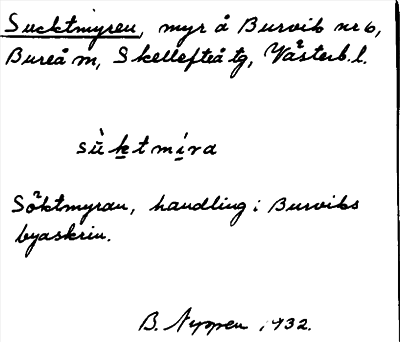 Sucktmyren, myr å Burvik nr 6,
Bureå m, Skellefteå tg, Västerb.l.
sùktmíra
Söktmyran, handling i Burviks
byaskrin.
B. Nyman, 1932.